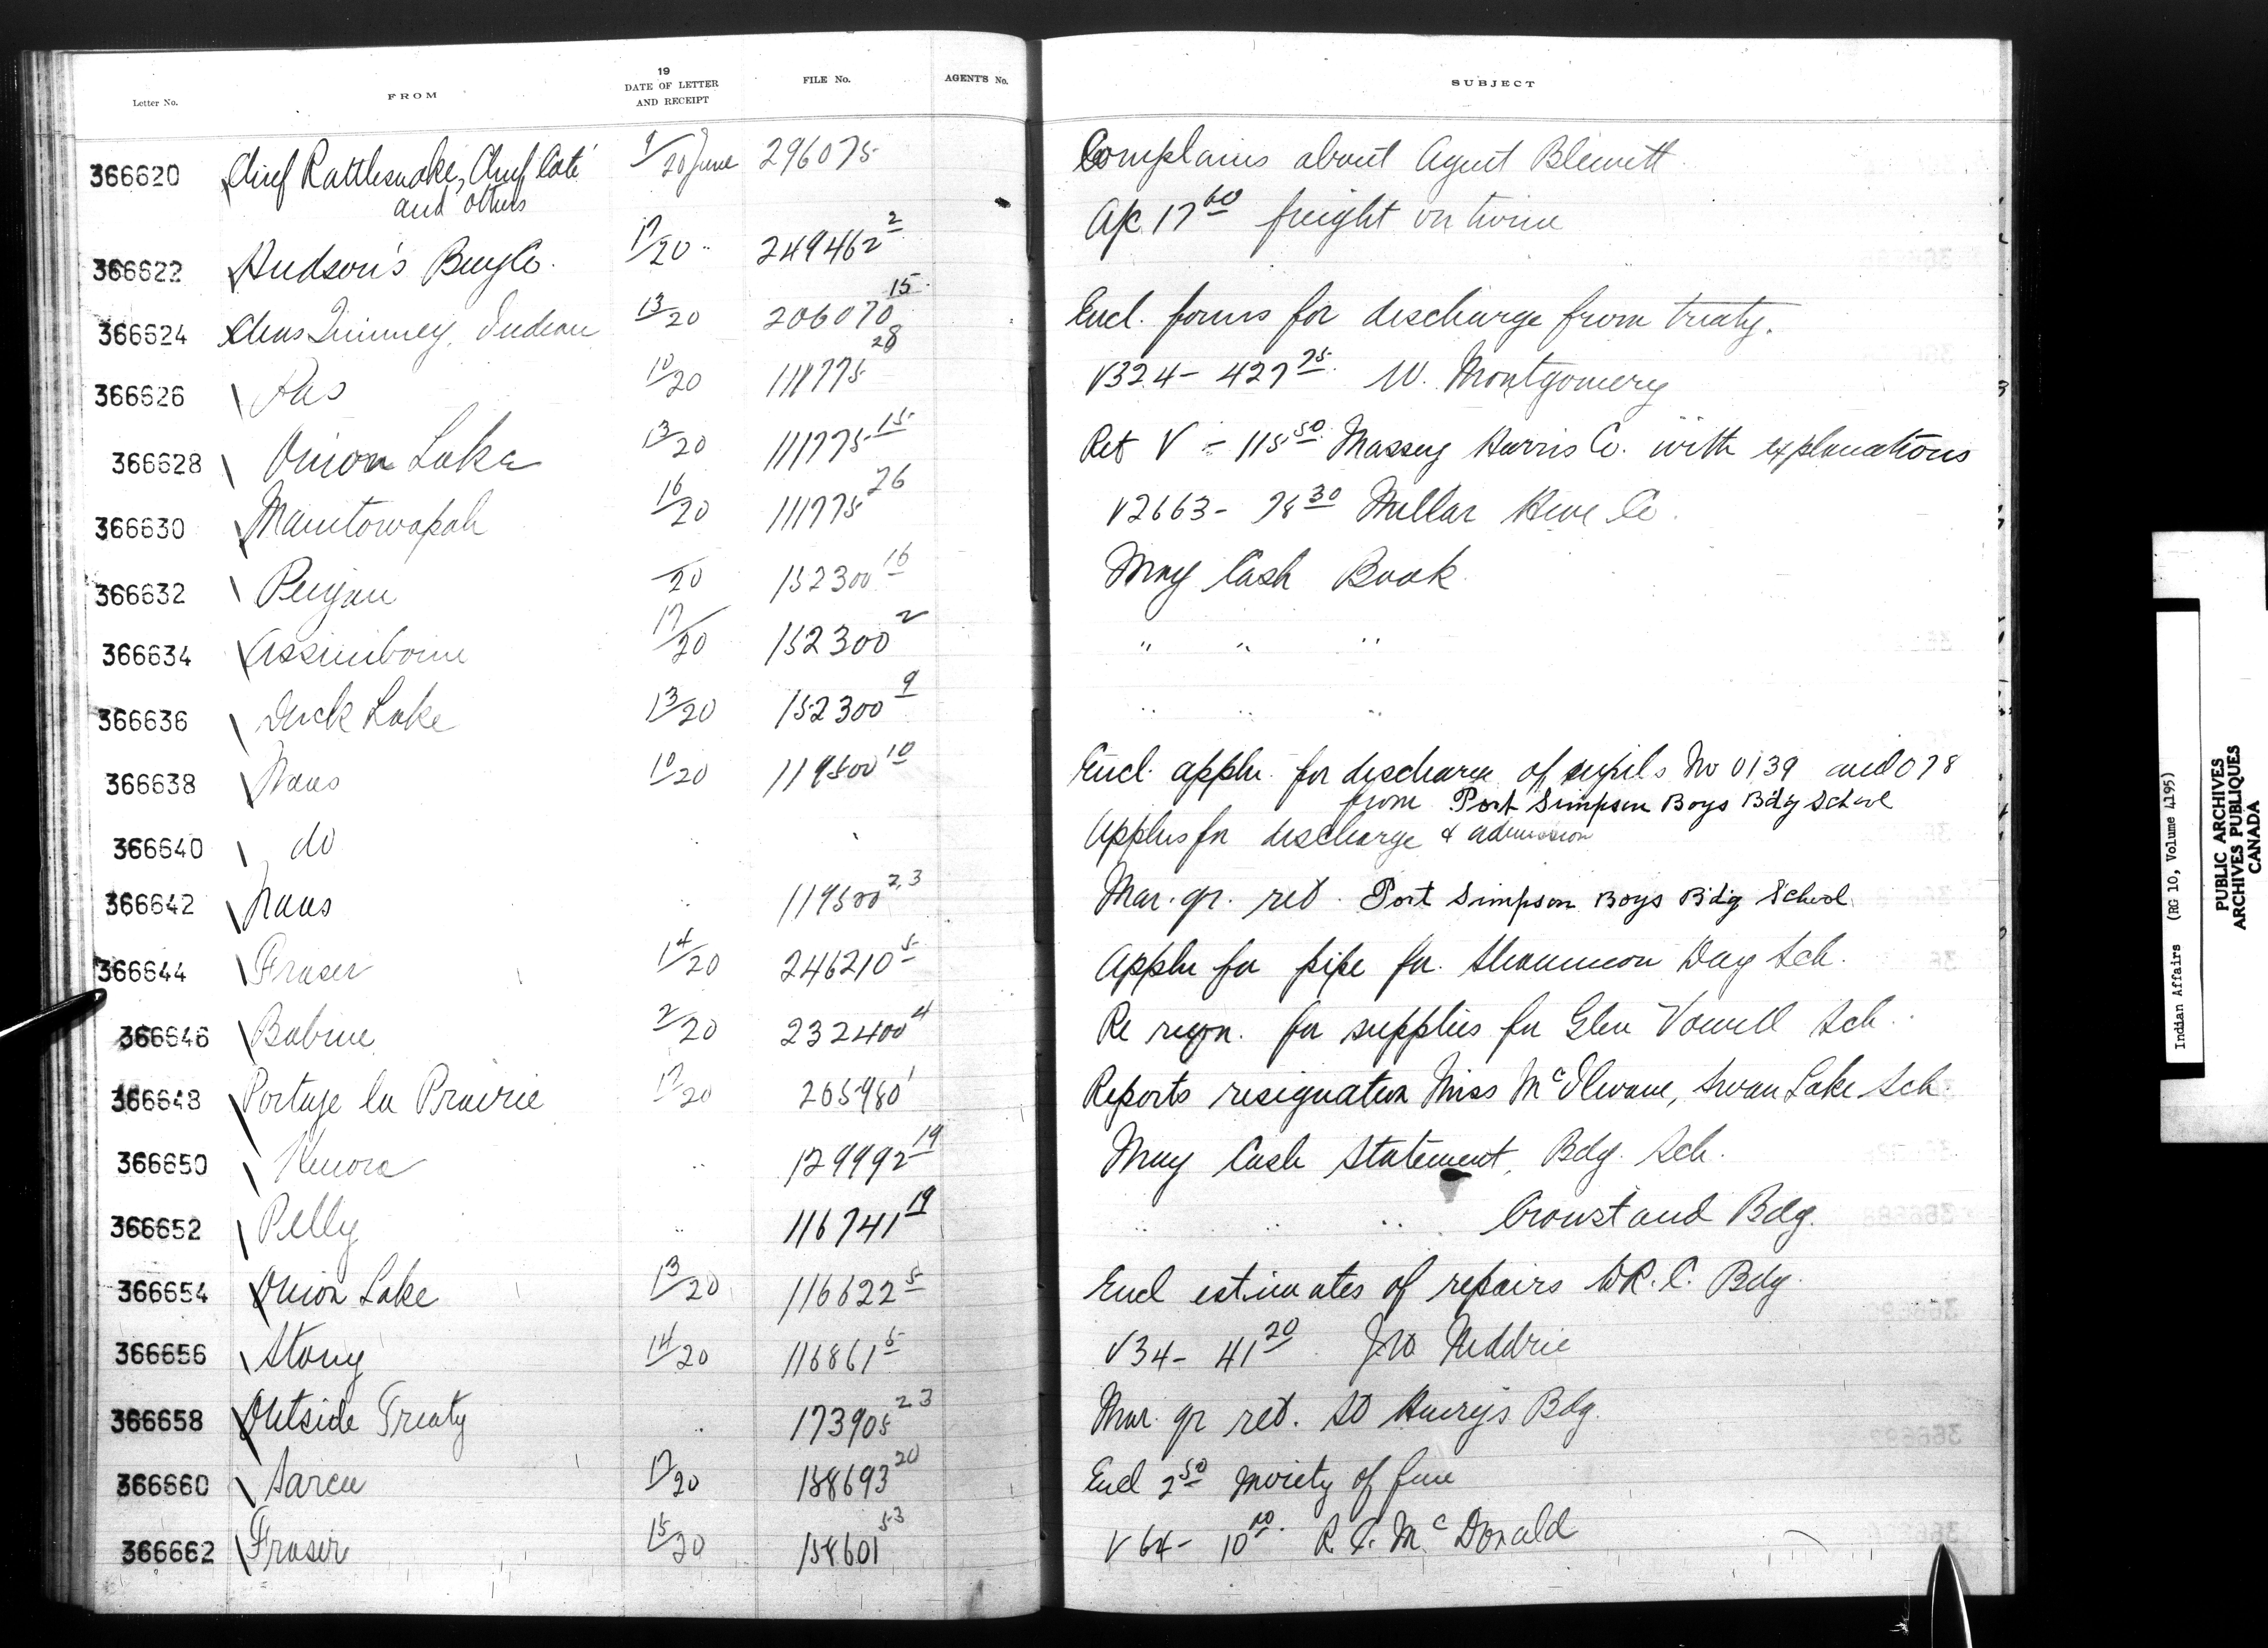 19
Letter No. FROM DATE OF LETTER AND RECEIPT FILE No. AGENT'S No. SUBJECT
366620 Chief Rattlesnake, Chief Coté and others 9/20 June 296075 Complains about Agent Blewett
366622 Hudson's Bay Co. 17/20 " 249462 2 A/c 17 60 freight on twine
366624 Chas Quinney, Indian 13/20 206070 15 Encl. forms for discharge from treaty.
366626 Pas 10/20 111775 28 V324 - 427 75 W. Montgomery
366628 Onion Lake 13/20 111775 15 Ret V - 115 50 Massey Harris Co. with explanations
366630 Manitowapah 16/20 111775 26 V2663 - 78 30 Millar Hdwe Co.
366632 Peigan /20 152300 16 May Cash Book
366634 Assiniboine 17/20 152300 2 " " "
366636 Duck Lake 13/20 152300 9 " " "
366638 Naas 10/20 119500 10 Encl. appln. for discharge of pupils No 0139 and 078
from Port Simpson Boys Bdg School
366640 do " " Applns for discharge & admission
366642 Naas " 119500 2,3 Mar. qr. ret. Port Simpson Boys Bdg School
366644 Fraser 14/20 246210 5 Appln for pipe for Day Sch.
366646 Babine 2/20 232400 4 Re reqn. for supplies for Glen Vowell Sch.
366648 Portage la Prairie 17/20 265980 1 Reports resignation Miss McIlwane, Swan Lake Sch
366650 Kenora " 129992 19 May Cash Statement, Bdg. Sch.
366652 Pelly " 116741 19 " " " Crowstand Bdg.
366654 Onion Lake 13/20 116622 5 Encl estimates of repairs to R.C. Bdg.
366656 Stony 14/20 116861 5 V34 - 41 20 J.W. Niddrie
366658 Outside Treaty " 173905 23 Mar. qr ret. St Henry's Bdg.
366660 Sarcee 17/20 158693 20 Encl 2 50 moiety of fine
366662 Fraser 15/20 158601 53 V 64 - 10 00 R. McDonald
Indian Affairs (RG 10, Volume 4195)
PUBLIC ARCHIVES
ARCHIVES PUBLIQUES
CANADA